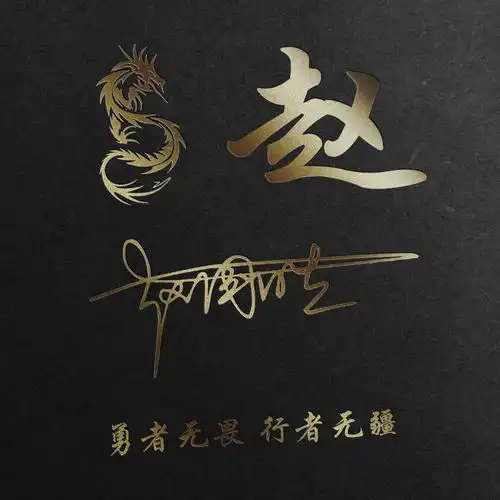 赵
勇者无畏 行者无疆